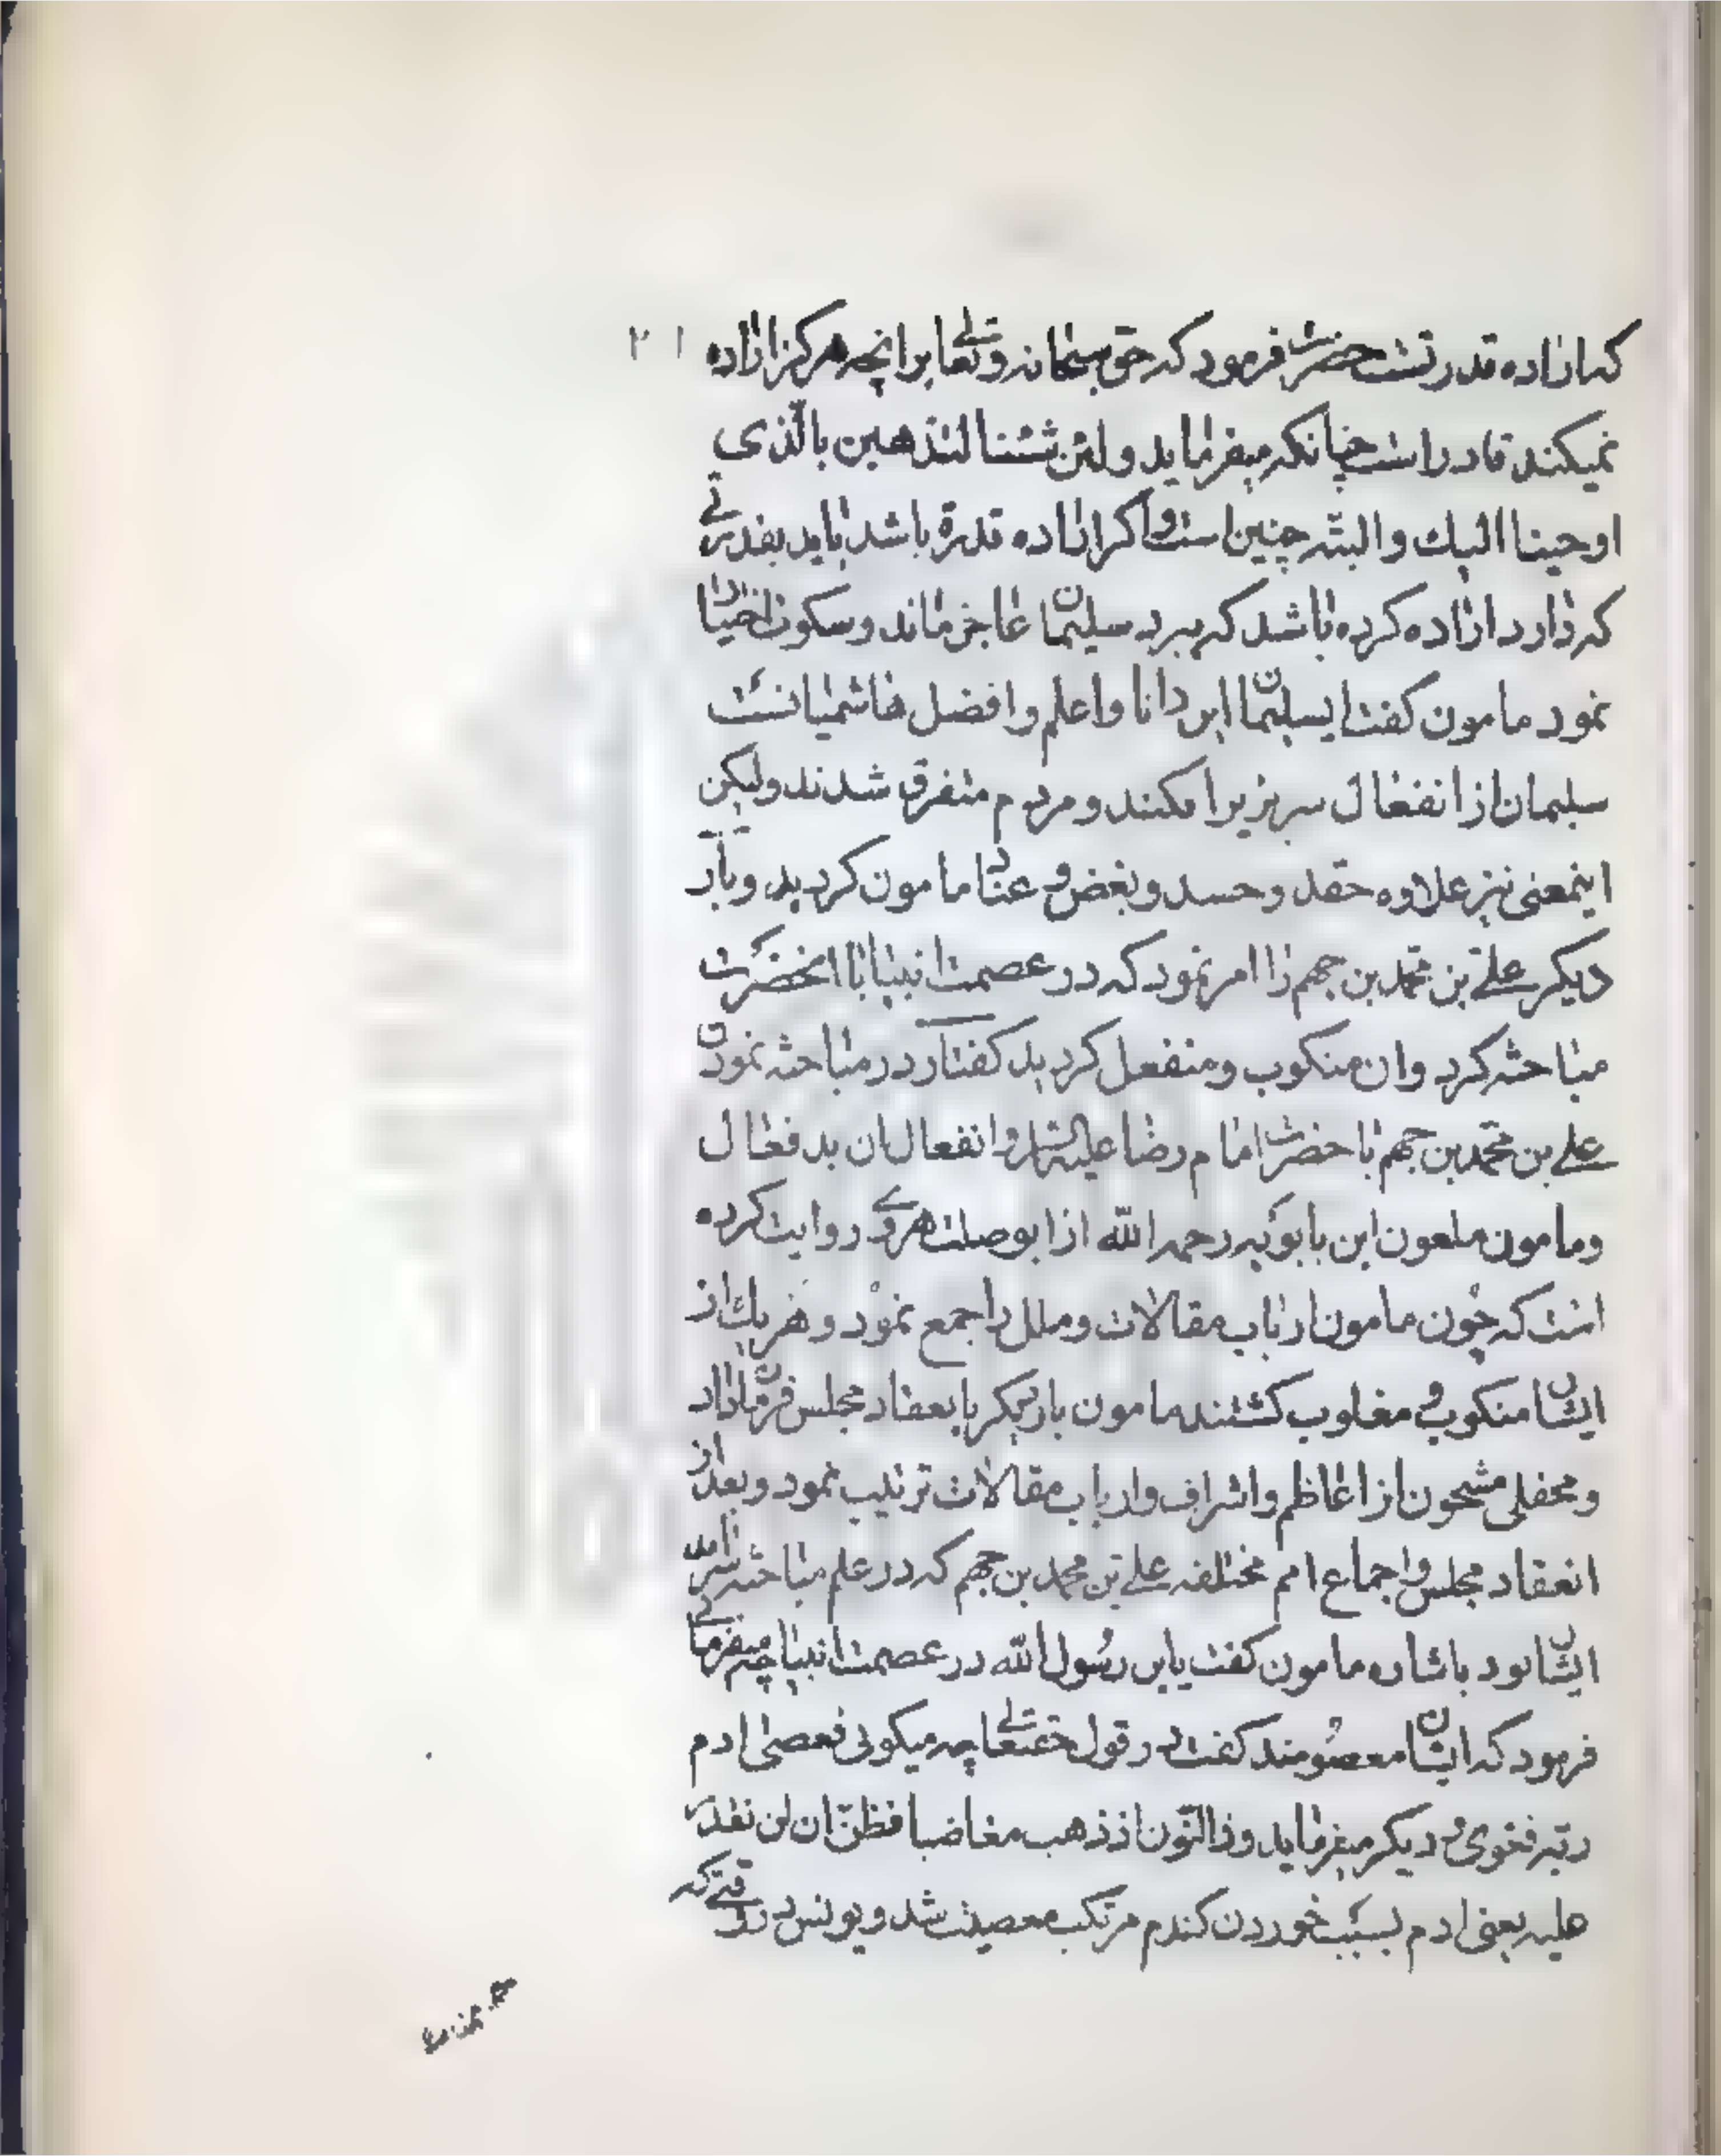 که اراده قدرتست حضرت فرمود که حق سبحانه وتعالی برانچه هرکز اراده ۲۱
نمیکند قادر است چنانکه میفرماید ولئن شئنا لنذهبن بالذی
اوحینا الیك والبته چنین است واکر اراده قدرة باشد باید بقدرتی
که دارد اراده کرده باشد که ببرد سلیمان عاجز ماند وسکوت اختیار
نمود مامون کفت ایسلیمان این دانا واعلم وافضل هاشمیانست
سلیمان از انفعال سر بزیر افکند ومردم متفرق شدند ولیکن
اینمعنی نیز علاوه حقد وحسد وبغض وعناد مامون کردید وبار
دیکر علی بن محمد بن جهم را امر نمود که در عصمت انبیا با انحضرت
مباحثه کرد وان منکوب ومنفعل کردید کفتار در مباحثه نمودن
علی بن محمد بن جهم با حضرت امام رضا علیه السلام وانفعال ان بدفعال
ومامون ملعون ابن بابویه رحمه الله از ابوصلت هروی روایت کرده
است که چون مامون ارباب مقالات وملل را جمع نمود وهریك از
ایشان منکوب ومغلوب کشتند مامون بار دیکر بانعقاد مجلس فرمان داد
ومحفلی مشحون از اعاظم واشراف وارباب مقالات ترتیب نمود وبعد از
انعقاد مجلس واجماع امم مختلفه علی بن محمد بن جهم که در علم مباحثه سرامد
ایشان بود باشاره مامون کفت یابن رسول الله در عصمت انبیا چه میفرمائی
فرمود که ایشان معصومند کفت در قول حقتعالی چه میکوئی فعصی ادم
ربه فغوی ودیکر میفرماید وذا النون اذ ذهب مغاضبا فظن ان لن نقدر
علیه یعنی ادم بسبب خوردن کندم مرتکب معصیت شد ویونس در وقتی که